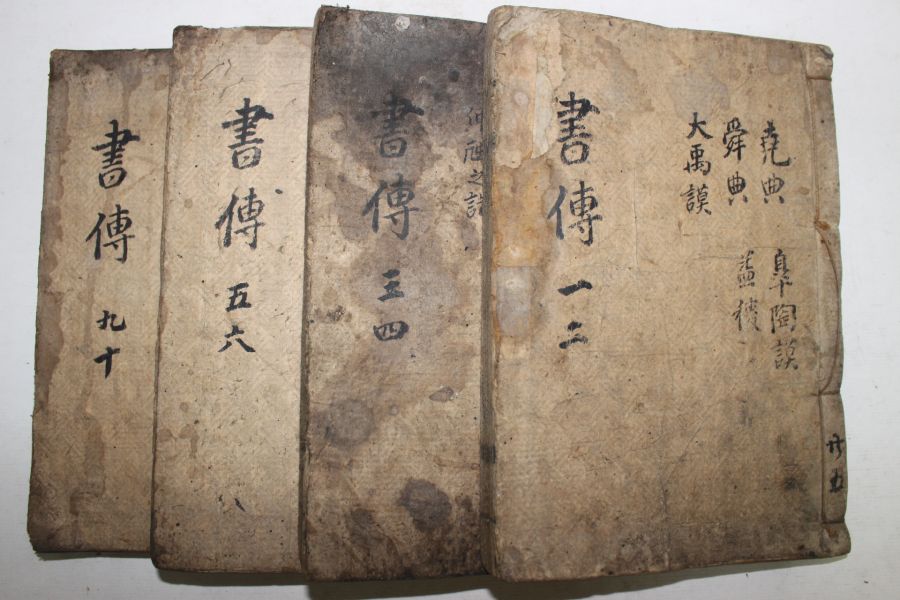 堯典
舜典
大禹謨
皐陶謨
益稷
共五
書傳 一二
仲虺之誥
書傳 三四
書傳 五六
書傳 九十